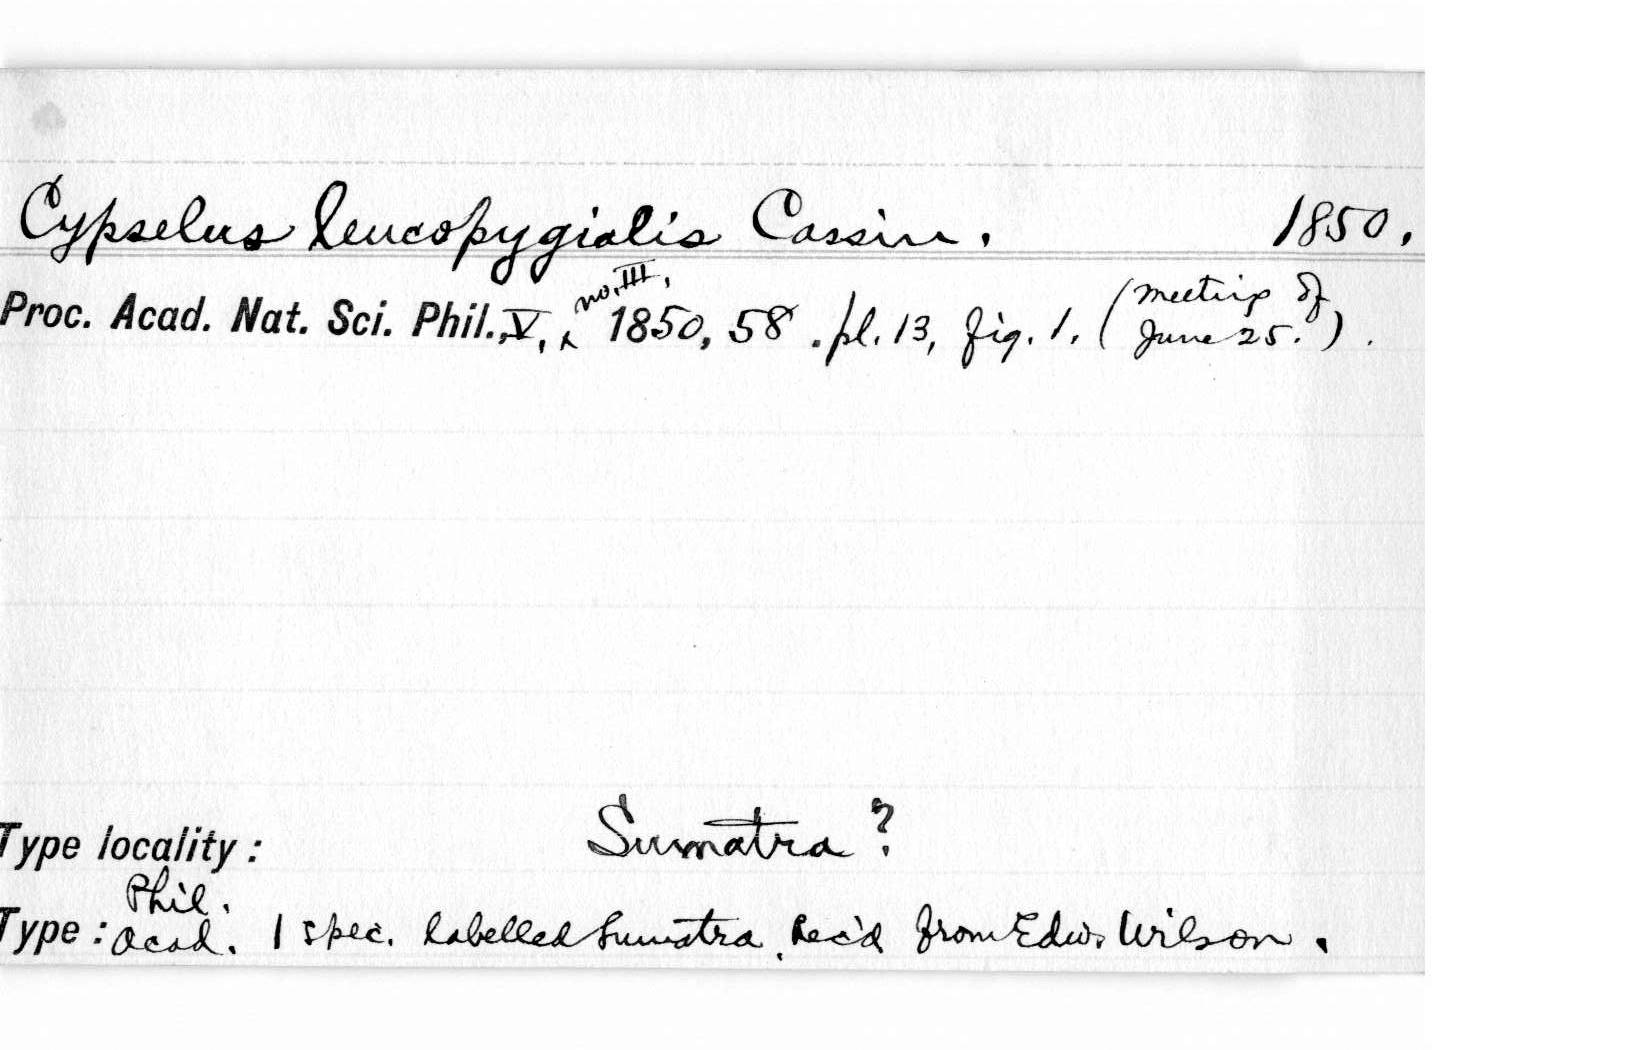 Cypselus leucopygialis Cassin. 1850.
Proc. Acad. Nat. Sci. Phil., V, no. III, 1850, 58. pl. 13, fig. 1. (meeting of June 25.).
Type locality: Sumatra?
Type: Phil. Acad. 1 spec. labelled Sumatra, Rec'd from Edw. Wilson.